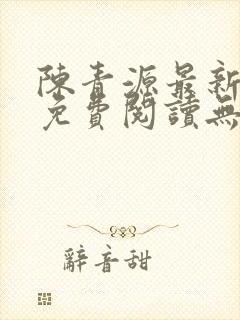 陳青源最新
免費閱讀無
辭音甜